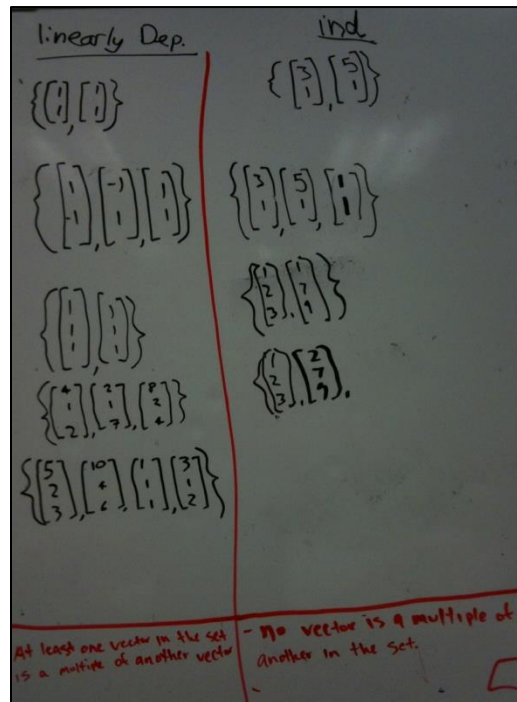 linearly Dep.
{[1 1], [1 1]}
{[1 -1], [-1 1], [1 1]}
{[1 1 1], [1 1 1]}
{[4 1 2], [2 1 7], [8 2 4]}
{[5 2 3], [10 4 6], [1 1 1], [3 1 2]}
At least one vector in the set
is a multiple of another vector
ind
{[3 1], [5 1]}
{[3 1], [5 1], [1 1]}
{[1 2 3], [1 7 9]}
{[1 2 3], [2 7 9],
- no vector is a multiple of
another in the set.
-